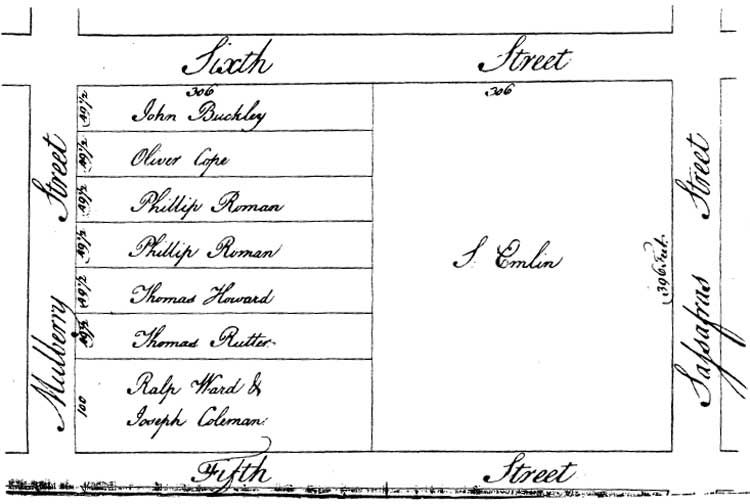 Sixth Street
306 306
49½ John Buckley
49½ Oliver Cope
49½ Phillip Roman
49½ Phillip Roman
49½ Thomas Howard
49½ Thomas Rutter
100 Ralp Ward &
Joseph Coleman
S. Emlin
396 Feet
Mulberry Street
Saſsafras Street
Fifth Street